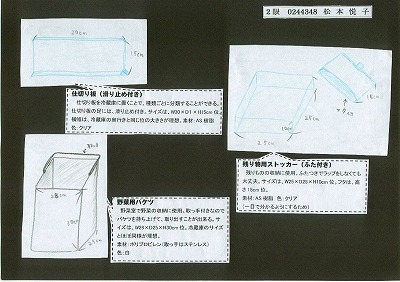 2限 0244348 松本悦子
30cm
15cm
仕切り板（滑り止め付き）
仕切り板を冷蔵庫に置くことで、種類ごとに分類することができる。
仕切り板の足には、滑り止め付き。サイズは、W30×D1×H15cm位。
横幅は、冷蔵庫の奥行きと同じ位の大きさが理想。素材：AS樹脂
色：クリア
25cm
10cm
残り物用ストッカー（ふた付き）
残りものの収納に使用。ふたつきでラップをしなくても
大丈夫。サイズは、W25×D25×H10cm位。フタは、高
さ15cm位。
素材：AS樹脂 色：クリア
（一目で分かるようにするため）
野菜用バケツ
野菜室で野菜の収納に使用。取っ手付きなので
バケツを持ち上げて、取り出すことが出来る。サ
イズは、W28×D25×H30cm位。冷蔵庫のサイズ
とほぼ同様が理想。
素材：ポリプロピレン（取っ手はステンレス）
色：白
28cm
30cm
25cm